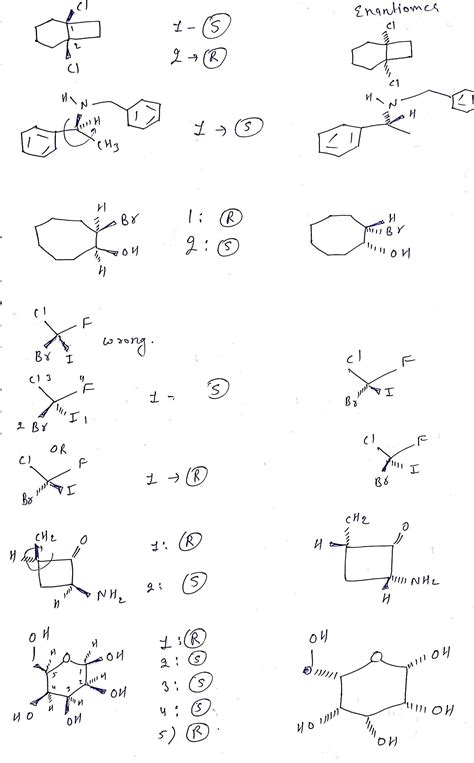 Enantiomers
Cl
1
2
Cl
1 - S
2 → R
Cl
Cl
H N
H
CH3
1 → S
H N
H
H
Br
OH
H
1: R
2: S
H
Br
OH
Cl
F
Br I
wrong.
Cl 3 4 F
2 Br I 1
1 - S
Cl
F
Br I
OR
Cl
F
Br I
1 → R
Cl
F
Br I
CH2
H
O
H NH2
1: R
2: S
CH2
H
O
H
NH2
OH
H O H
OH
5 1
4 3 2
H
H
HO
OH
OH
H
1: R
2: S
3: S
4: S
5) R
OH
O
OH
HO
OH
OH